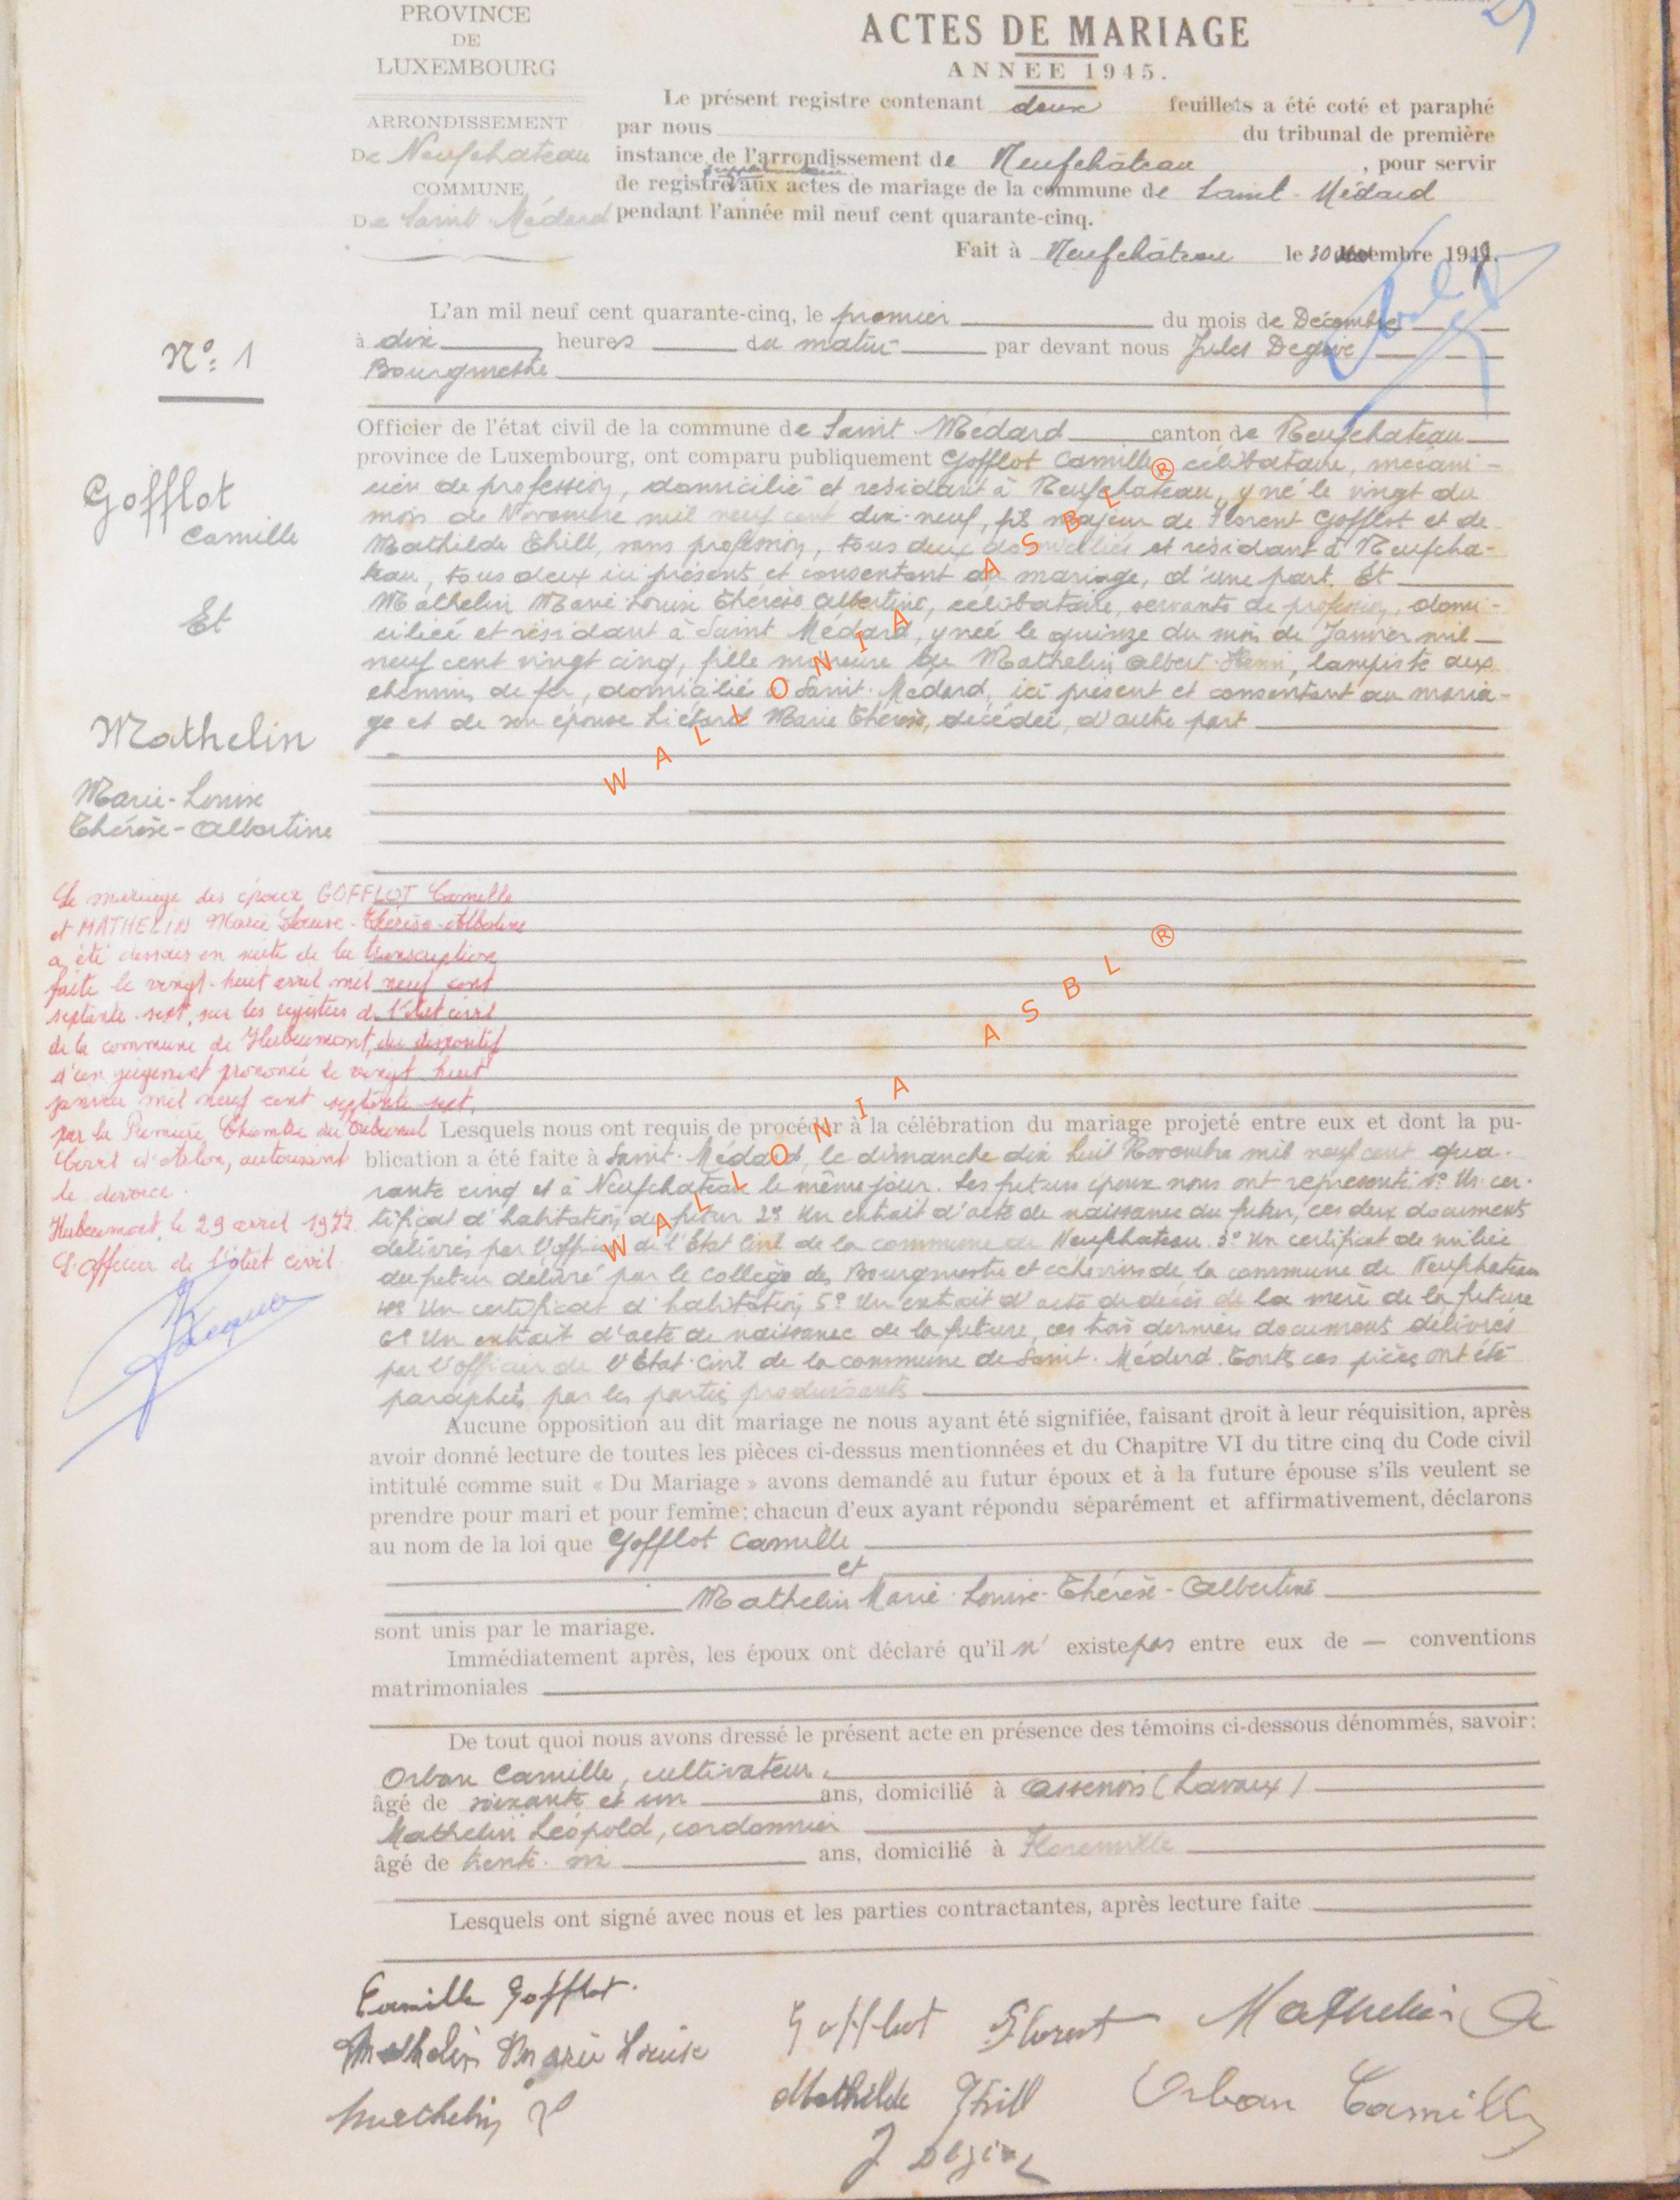 PROVINCE
DE
LUXEMBOURG
ARRONDISSEMENT
De Neufchateau
COMMUNE
De Saint Médard
ACTES DE MARIAGE
ANNEE 1945.
Le présent registre contenant deux feuillets a été coté et paraphé
par nous du tribunal de première
instance de l'arrondissement de Neufchâteau, pour servir
de registre supplémentaire aux actes de mariage de la commune de Saint-Médard
pendant l'année mil neuf cent quarante-cinq.
Fait à Neufchâteau le 30 embre 194
L'an mil neuf cent quarante-cinq, le premier du mois de Décembre
à dix heures du matin par devant nous Jules Degive
Bourgmestre
Officier de l'état civil de la commune de Saint Médard canton de Neufchateau
province de Luxembourg, ont comparu publiquement Gofflot Camille célibataire, mécani-
cien de profession, domicilié et résidant à Neufchateau, y né le vingt du
mois de Novembre mil neuf cent dix-neuf, fils majeur de Florent Gofflot et de
Mathilde Thill, sans profession, tous deux domiciliés et résidant à Neufcha-
teau, tous deux ici présents et consentant au mariage, d'une part. Et
Mathelin Marie Louise Thérèse Albertine, célibataire, servante de profession, domi-
ciliée et résidant à Saint Médard, y née le quinze du mois de Janvier mil
neuf cent vingt cinq, fille mineure de Mathelin Albert Henri, lampiste aux
chemins de fer, domicilié à Saint-Médard, ici présent et consentant au maria-
ge et de son épouse Liétard Marie Thérèse, décédée, d'autre part
N°: 1
Gofflot
Camille
Et
Mathelin
Marie-Louise
Thérèse-Albertine
Le mariage des époux GOFFLOT Camille
et MATHELIN Marie Louise-Thérèse-Albertine
a été dissous en suite de la transcription
faite le vingt-huit avril mil neuf cent
septante-sept, sur les registres de l'état civil
de la commune de Herbeumont, du dispositif
d'un jugement prononcé le vingt huit
janvier mil neuf cent septante-sept,
par la Première Chambre du Tribunal
Civil d'Arlon, autorisant
le divorce.
Herbeumont, le 29 avril 1977
L'Officier de l'état civil.
Lesquels nous ont requis de procéder à la célébration du mariage projeté entre eux et dont la pu-
blication a été faite à Saint-Médard, le dimanche dix huit Novembre mil neuf cent qua-
rante cinq et à Neufchateau le même jour. Les futurs époux nous ont représenté 1° Un cer-
tificat d'habitation du futur 2° Un extrait d'acte de naissance du futur, ces deux documents
délivrés par l'officier de l'Etat Civil de la commune de Neufchateau 3° Un certificat de milice
du futur délivré par le collège des Bourgmestre et échevins de la commune de Neufchateau
4° Un certificat d'habitation 5° Un extrait d'acte de décès de la mère de la future
6° Un extrait d'acte de naissance de la future, ces trois derniers documents délivrés
par l'officier de l'Etat-Civil de la commune de Saint-Médard. Toutes ces pièces ont été
paraphées par les parties produisants
Aucune opposition au dit mariage ne nous ayant été signifiée, faisant droit à leur réquisition, après
avoir donné lecture de toutes les pièces ci-dessus mentionnées et du Chapitre VI du titre cinq du Code civil
intitulé comme suit « Du Mariage » avons demandé au futur époux et à la future épouse s'ils veulent se
prendre pour mari et pour femme; chacun d'eux ayant répondu séparément et affirmativement, déclarons
au nom de la loi que Gofflot Camille
et
Mathelin Marie-Louise-Thérèse-Albertine
sont unis par le mariage.
Immédiatement après, les époux ont déclaré qu'il n' existe pas entre eux de — conventions
matrimoniales
De tout quoi nous avons dressé le présent acte en présence des témoins ci-dessous dénommés, savoir:
Orban Camille, cultivateur,
âgé de soixante et un ans, domicilié à Assenois (Lavaux)
Mathelin Léopold, cordonnier
âgé de trente-six ans, domicilié à Florenville
Lesquels ont signé avec nous et les parties contractantes, après lecture faite
Camille Gofflot.
Gofflot Florent
Mathelin A
Mathelin Marie Louise
Mathilde Thill
Orban Camille
Mathelin L
J Degive
WALLONIA ASBL ®
WALLONIA ASBL ®